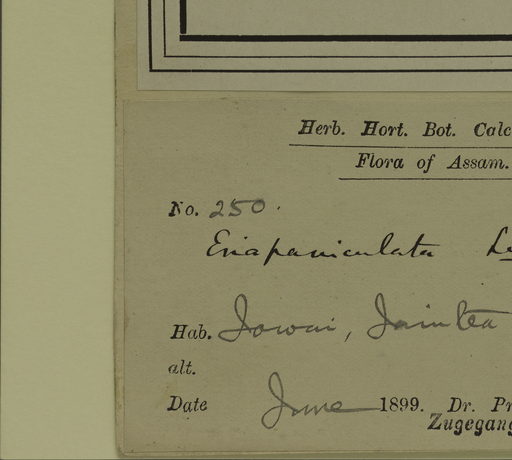 Herb. Hort. Bot. Calc
Flora of Assam.
No. 250.
Eria paniculata
Hab. Jowai, Jaintea
alt.
Date June 1899. Dr. Pr
Zugegang